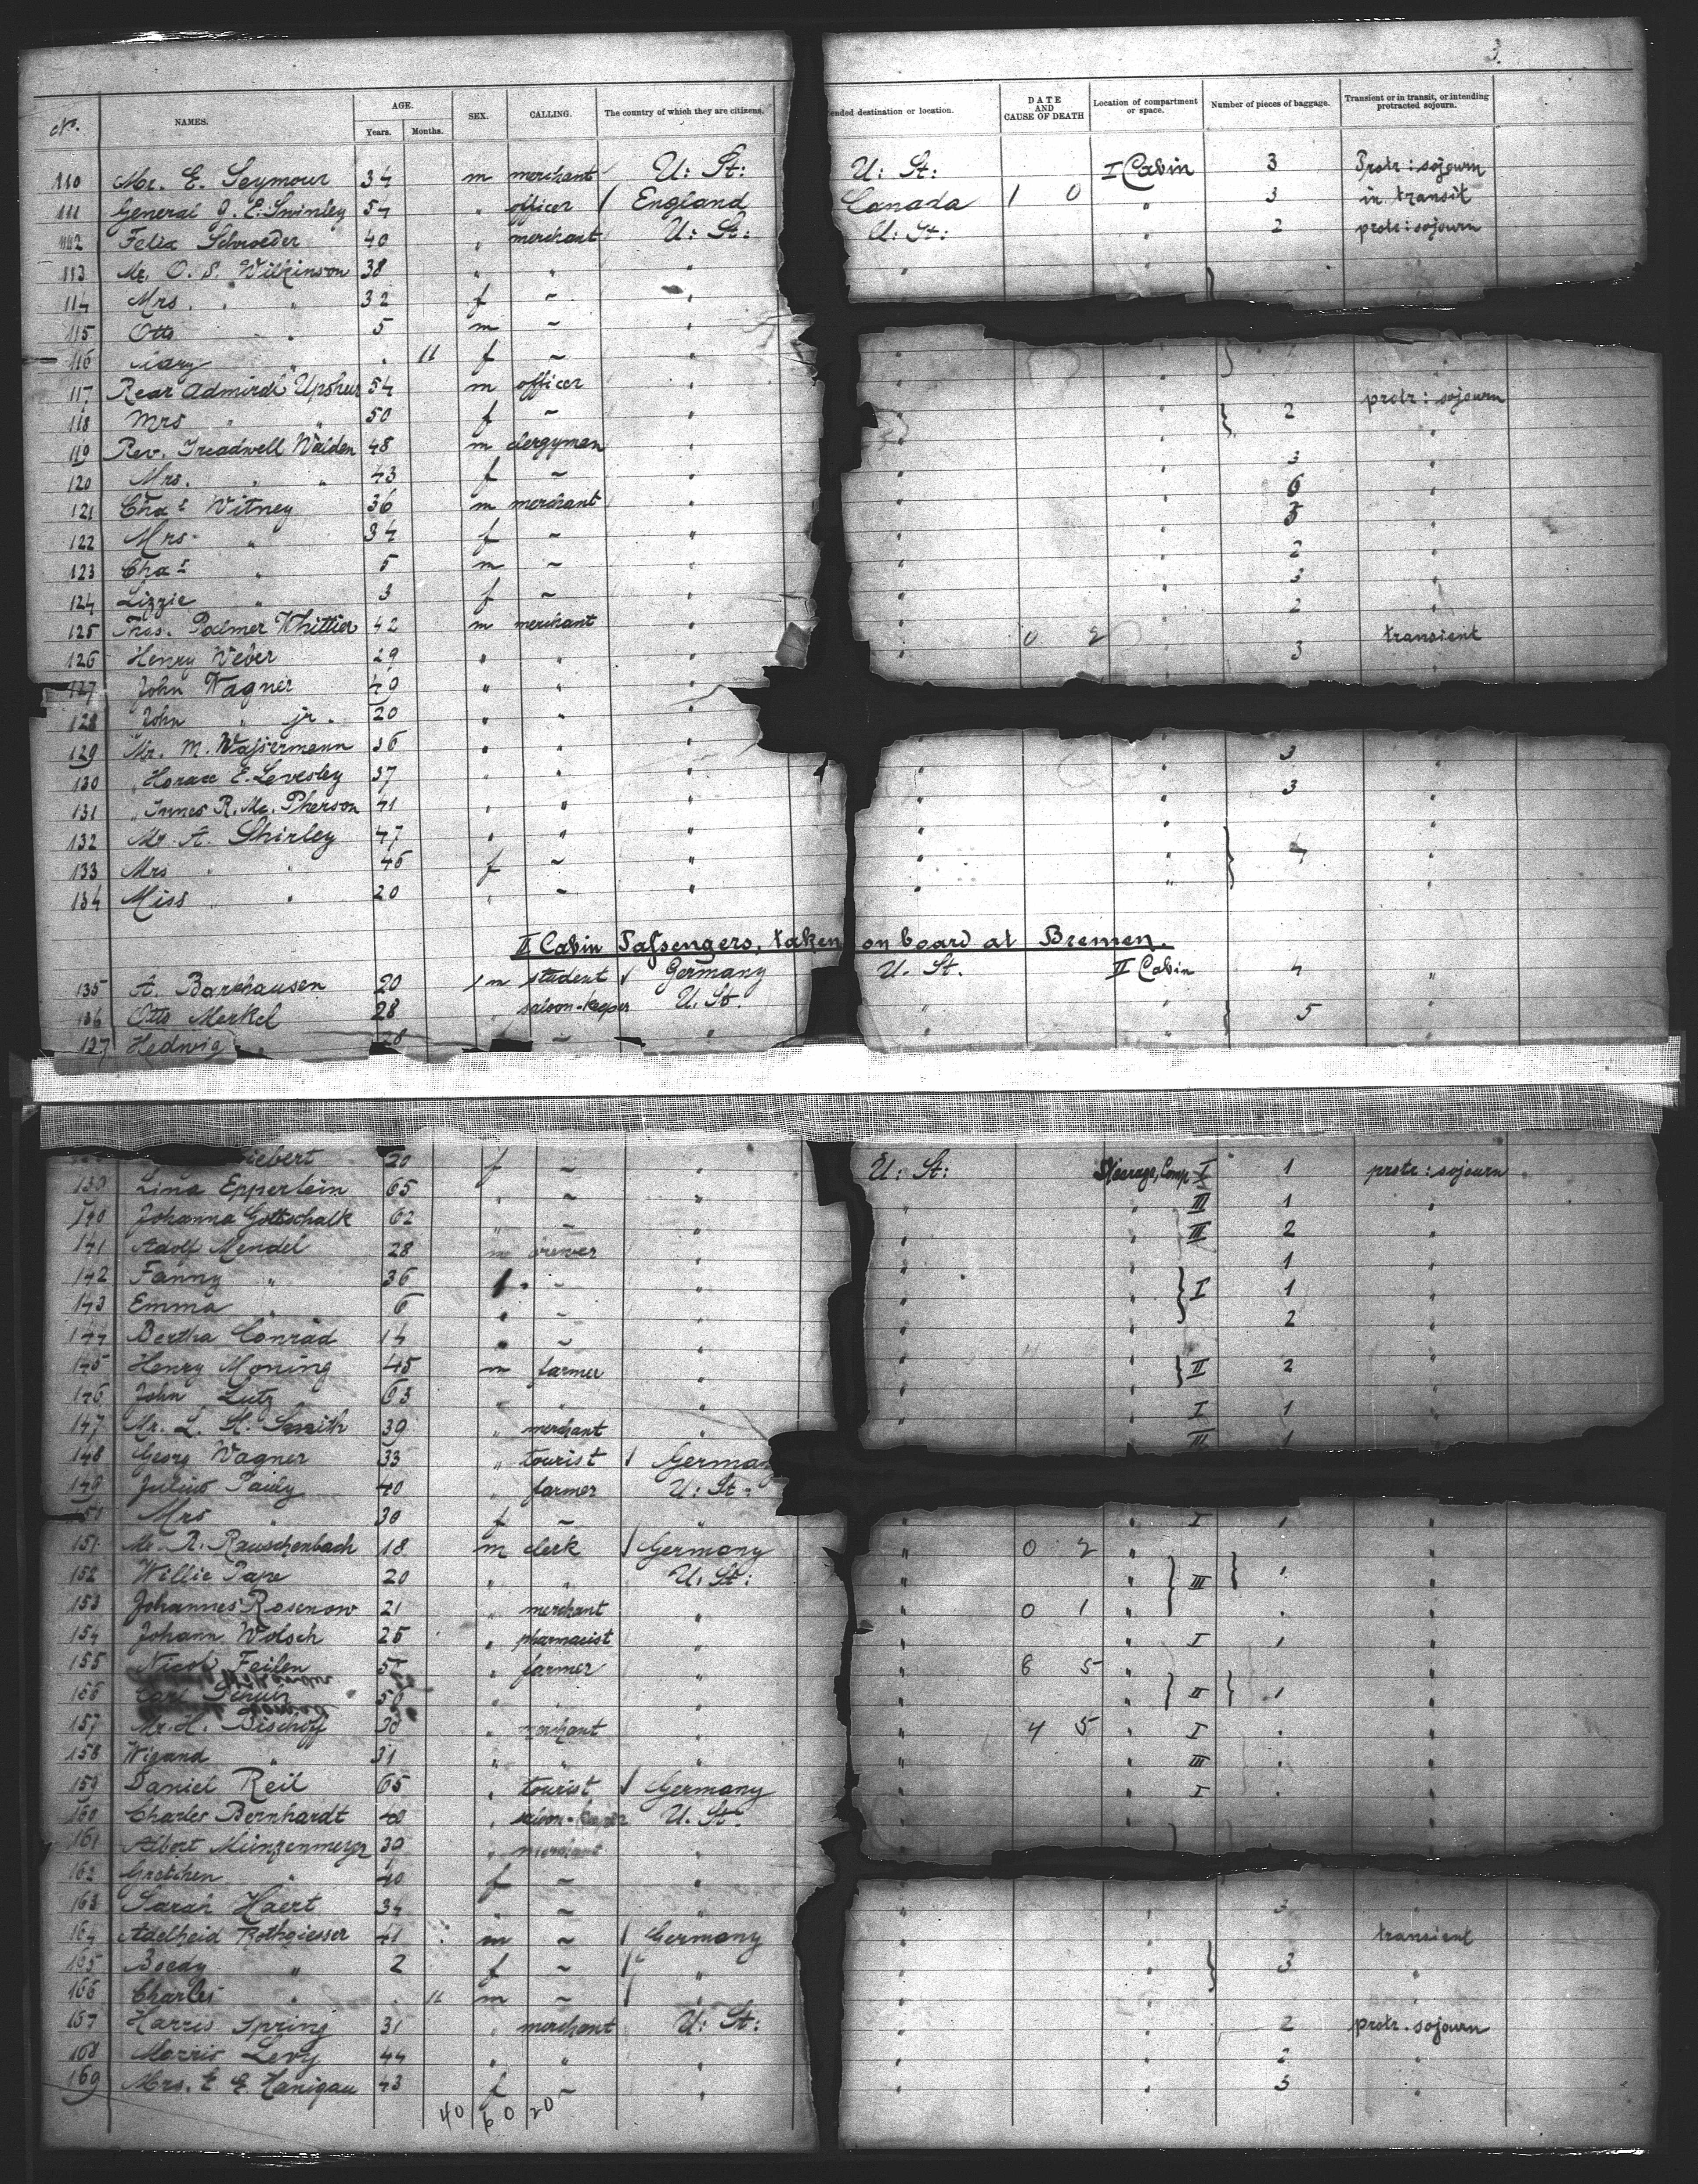 3.
No. NAMES. AGE. Years. Months. SEX. CALLING. The country of which they are citizens. ended destination or location. DATE AND CAUSE OF DEATH Location of compartment or space. Number of pieces of baggage. Transient or in transit, or intending protracted sojourn.
110 Mr. E. Seymour 34 m merchant U: St: U: St: I Cabin 3 Protr: sojourn
111 General J. E. Swinley 54 " officer England Canada 1 0 " 3 in transit
112 Felix Schroeder 40 " merchant U: St: U: St: " 2 protr: sojourn
113 Mr. O. S. Wilkinson 38 " " " " "
114 Mrs. " " 32 f ~ "
115 Otto " 5 m ~ "
116 Mary " " 11 f ~ "
117 Rear Admiral Upshur 54 m officer " protr: sojourn
118 Mrs " " 50 f ~ " 2
119 Rev. Treadwell Walden 48 m clergyman " 3
120 Mrs. " " 43 f ~ " 6
121 Chas Witney 36 m merchant " 3
122 Mrs. " 34 f ~ " 2
123 Chas " 5 m ~ " 3
124 Lizzie " 3 f ~ " 2
125 Thos. Palmer Whittier 42 m merchant " 0 2 transient
126 Henry Weber 29 " " " 3
127 John Wagner 49 " " "
128 John " jr. 20 " " "
129 Mr. M. Wassermann 36 " " " 3
130 " Horace E. Levesley 37 " " " 3
131 " Innes R. Mc. Pherson 41 " " "
132 Mr. A. Shirley 47 " " " 4
133 Mrs " " 46 f ~ "
134 Miss " " 20 " ~ "
II Cabin Passengers, taken on board at Bremen.
135 A. Barkhausen 20 m student Germany U. St. II Cabin 4 "
136 Otto Merkel 28 " saloon-keeper U. St. " " 5 "
137 Hedwig " 28 ~ "
iebert 20 f ~ " U: St: Steerage, Comp. I 1 protr: sojourn
139 Lina Epperlein 65 " ~ " " " III 1 "
140 Johanna Gottschalk 62 " ~ " " " III 2 "
141 Adolf Mendel 28 m brewer " " " 1 "
142 Fanny " 36 f ~ " " " I 1 "
143 Emma " 6 " ~ " " " 2 "
144 Bertha Conrad 14 " ~ "
145 Henry Moning 45 m farmer " " " II 2 "
146 John Lutz 63 " " " "
147 Mr. L. H. Smith 39 " merchant " " " I 1 "
148 Georg Wagner 33 " tourist German " III 1
149 Julius Pauly 40 " farmer U: St:
151 Mrs " 30 f ~ " " " I "
151 Mr. R. Rauschenbach 18 m clerk Germany " 0 2 " "
152 Willie Pape 20 " " U. St: " " III "
153 Johannes Rosenow 21 " merchant " " 0 1 " "
154 Johann Wolsch 25 " pharmacist " " " I "
155 Nicol Feilen 5 " farmer " " 8 5 " "
156 Carl 50 " " " " " II 1 "
157 Mr. H. Bischoff 30 " merchant " " 4 5 " I "
158 Wigand " 31 " " " " " III "
159 Daniel Reil 65 " tourist Germany " " I "
160 Charles Bernhardt 40 " saloon-keeper U. St.
161 Albert Münzenmeyer 39 " merchant "
162 Gretchen " 40 f ~ "
163 Sarah Haert 34 " ~ " " " 3 "
164 Adelheid Rothgiesser 41 m ~ Germany " transient
165 " 2 f ~ " " " 3 "
166 Charles " " 11 m ~ "
167 Harris Spring 31 " merchant U: St: " " 2 protr. sojourn
168 Morris Levy 44 " " " " " 2 "
169 Mrs. E. E. Hanigau 43 f ~ " " " 5 "
40 60 20